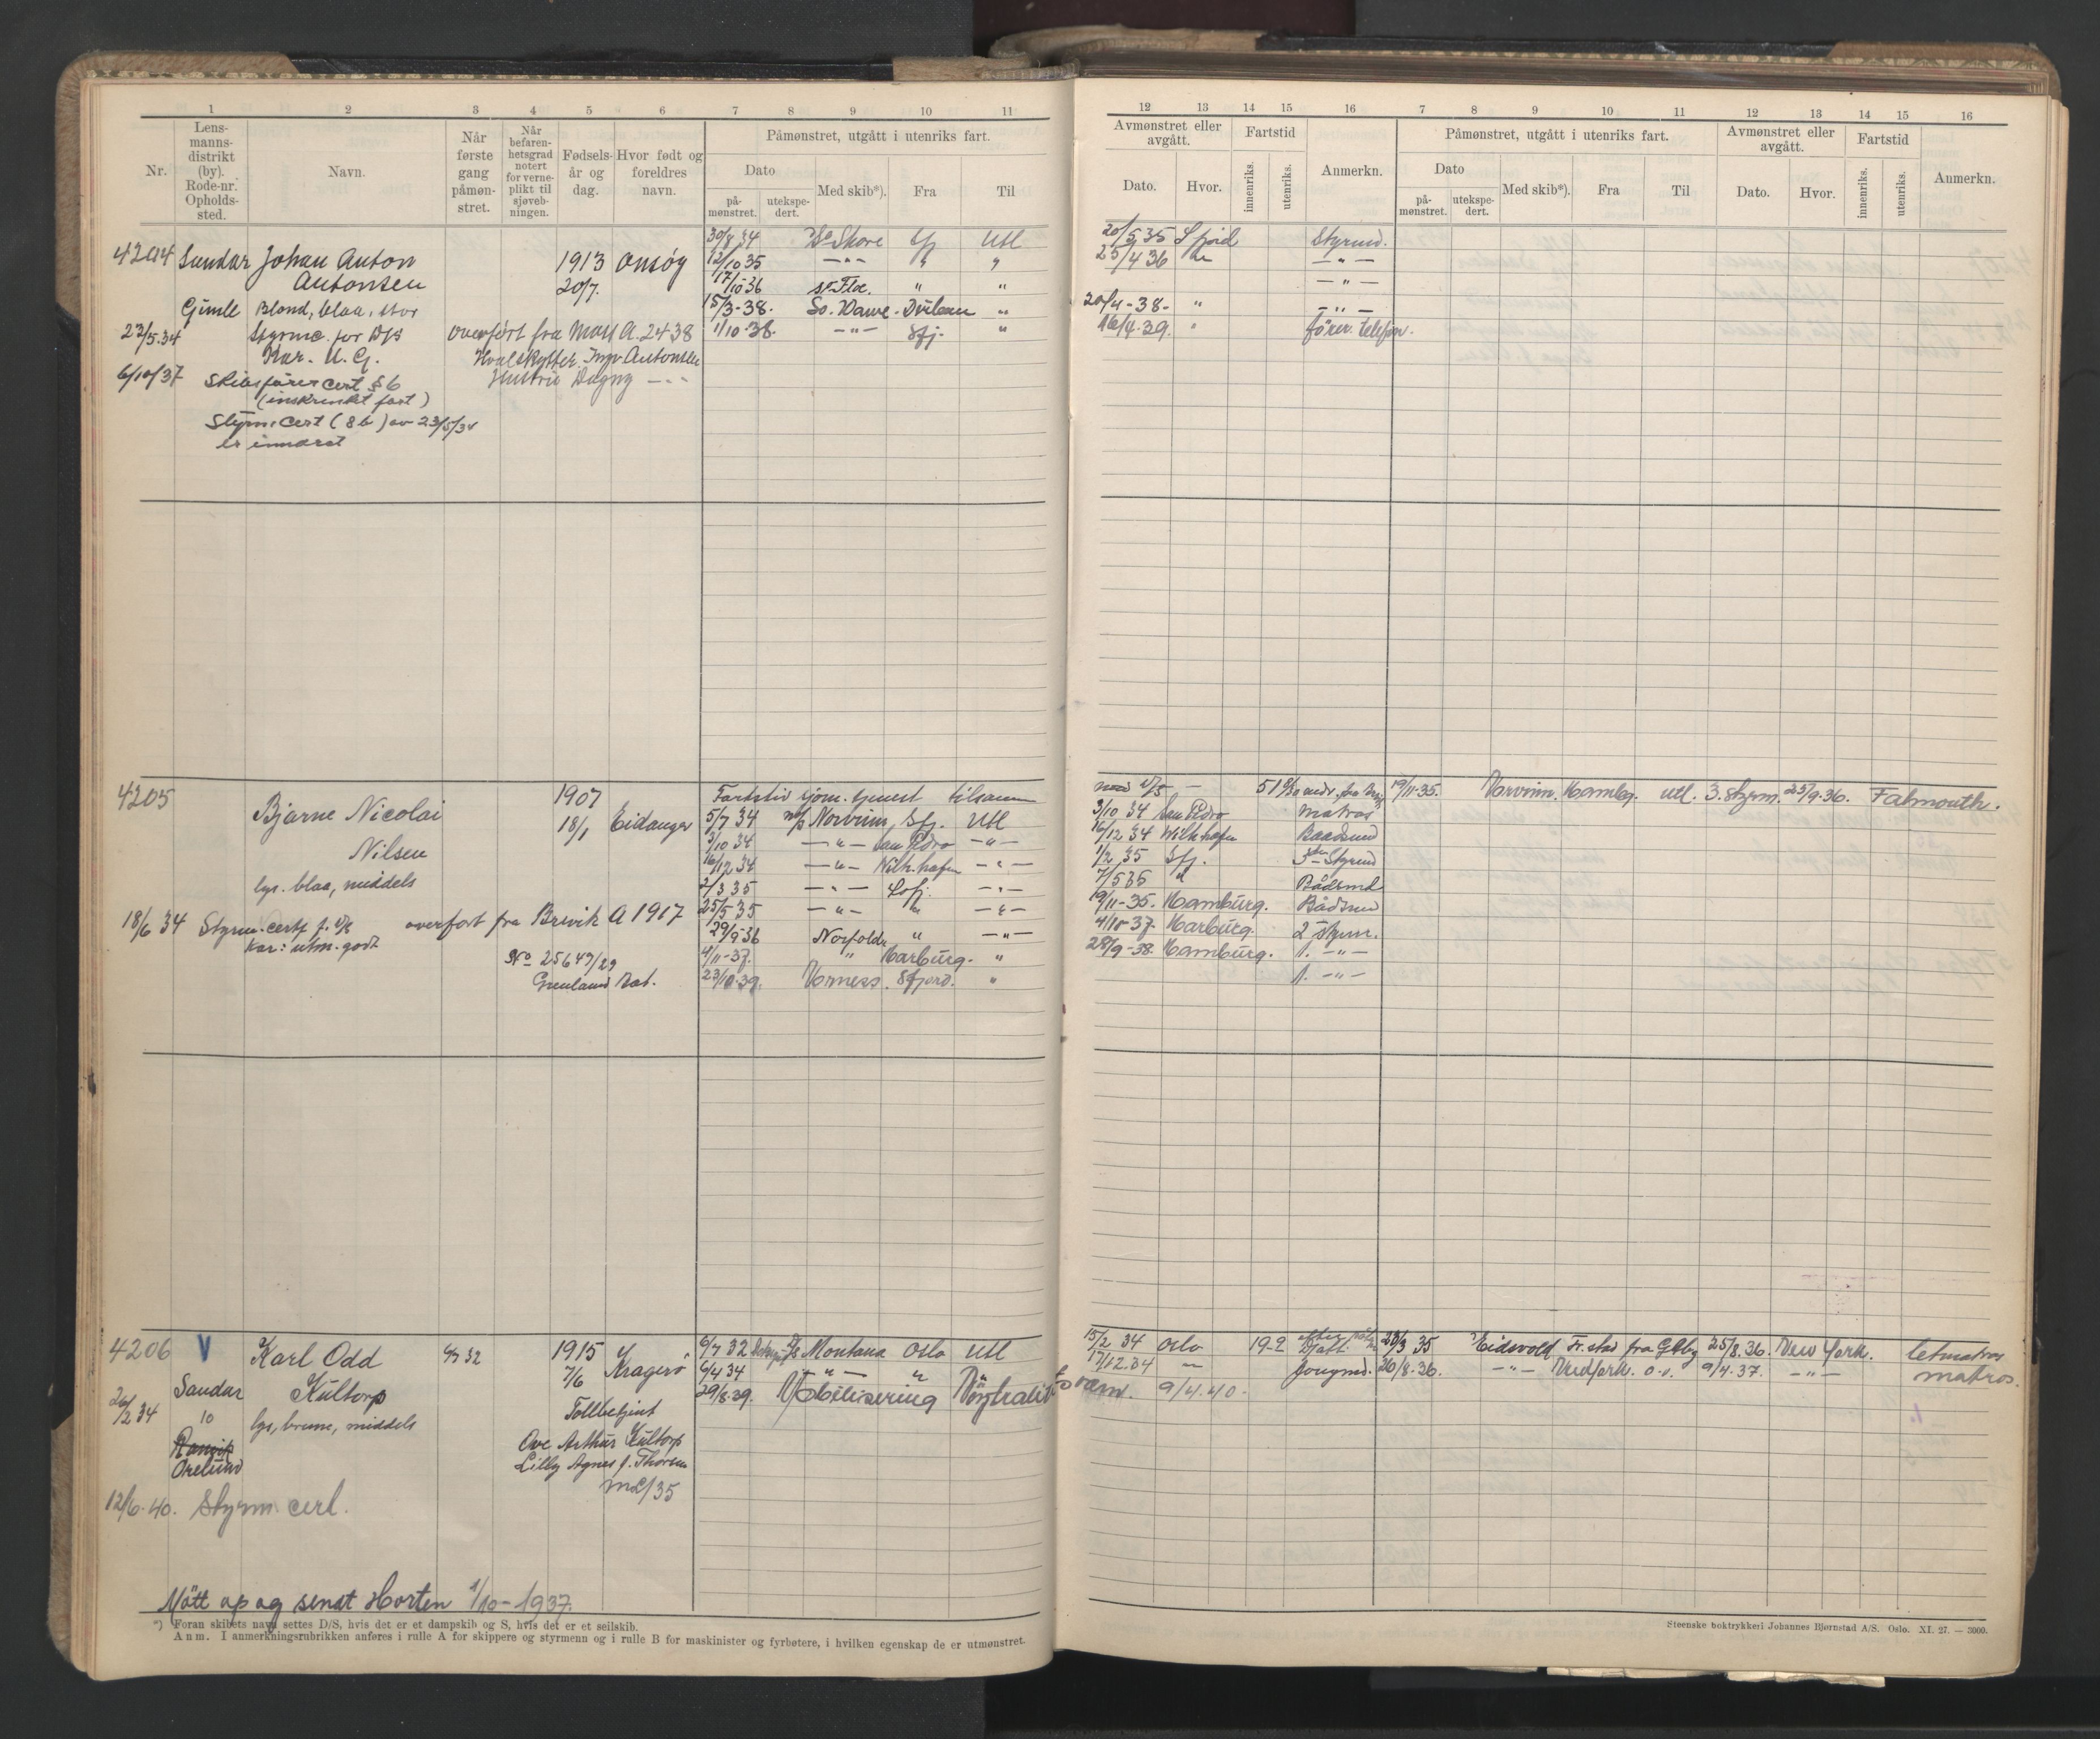 1 2 3 4 5 6 7 8 9 10 11
Nr.
Lens-
manns-
distrikt
(by).
Rode-nr.
Opholds-
sted.
Navn.
Når
første
gang
påmøn-
stret.
Når
befaren-
hetsgrad
notert
for verne-
plikt til
sjøveb-
ningen.
Fødsels-
år og
dag.
Hvor født og
foreldres
navn.
Påmønstret, utgått i utenriks fart.
Dato
på-
mønstret.
utekspe-
dert.
Med skib*).
Fra
Til
4204 Sandar Johan Anton 1913 Onsøy
Antonsen 20/7.
Gimle Blond, blaa, stor
23/5.34 Styrmc. for D/S overført fra A. 2438
Kar. M. G. Hvalskytter Antonsen
6/10/37 Skibsførercert § 6 Hustru Dagny — " —
(inskrenket fart)
Styrm. cert (§ b) av 23/5/34
er inndrat
30/8 34 Skore Sfj Utl
12/10 35 — " — " "
17/10-36 " "
15/3-38. "
1/10-38. — " — Sfj. "
4205 Bjarne Nicolai 1907
18/1 Eidanger
Nilsen
lys. blaa, middels
18/6 34 Styrm. cert overført fra Brevik A 1917
Kar: utm. godt
No 25649/29
Fartstid tilsammen
5/7 34 Norvinn, Sfj. Utl
3/10 34 — " — San Pedro — " —
16/12 34 — " — Wilh.hafen — " —
2/3 35 — " — — " —
25/5 35 — " — " — " —
29/9-36 " — " —
4/11-37. " Harburg. "
23/10.39. Vorness. Sfjord. "
4206 V Karl Odd 1915 Kragerø
7/6
Sandar Kultorp
26/2 34 10 lys, brune, middels Tollbetjent
Ove Arthur Kultorp
Orelund Lilly Agnes f. Thorsen
ML/35
12/6-40. Styrm. cert.
6/7 32 Montana Oslo Utl
6/4 34 — " — " "
29/8.39. Mobilisering Nøytralitetsvern. 9/4.40.
Møtt op og sendt Horten 1/10-1937.
*) Foran skibets navn settes D/S, hvis det er et dampskib og S, hvis det er et seilskib.
Anm. I anmerkningsrubrikken anføres i rulle A for skippere og styrmenn og i rulle B for maskinister og fyrbøtere, i hvilken egenskap de er utmønstret.
12 13 14 15 16 7 8 9 10 11 12 13 14 15 16
Avmønstret eller
avgått.
Dato.
Hvor.
Fartstid
innenriks.
utenriks.
Anmerkn.
Påmønstret, utgått i utenriks fart.
Dato
på-
mønstret.
utekspe-
dert.
Med skib*).
Fra
Til
Avmønstret eller
avgått.
Dato.
Hvor.
Fartstid
innenriks.
utenriks.
Anmerkn.
20/5 35 Sfjord Styrmd.
25/4 36 — " —
— " —
20/4-38- " — " —
16/4.39. "
19/11-35. Norvinn. Hamburg. utl. 3. styrm. 25/9-36. Falmouth.
3/10 34 San Pedro Matros
16/12 34 Wilh.hafen Baadsmd
1/2 35 Sfj. 3 Styrmd
7/5 35 Bådsmd
19/11-35. Hamburg. Bådsmd
4/10-37. Harburg. 2 styrm.
28/9-38. Hamburg. 1. — " —
1. — " —
15/2 34 Oslo 19-2 Eidsvold Fr.stad fra Gbg 25/8.36. New York. letmatros
17/12.34 " Jungmd. 26/8-36. — " — 9/4-37. — " — matros.
Steenske boktrykkeri Johannes Bjørnstad A/S. Oslo. XI. 27. — 3000.